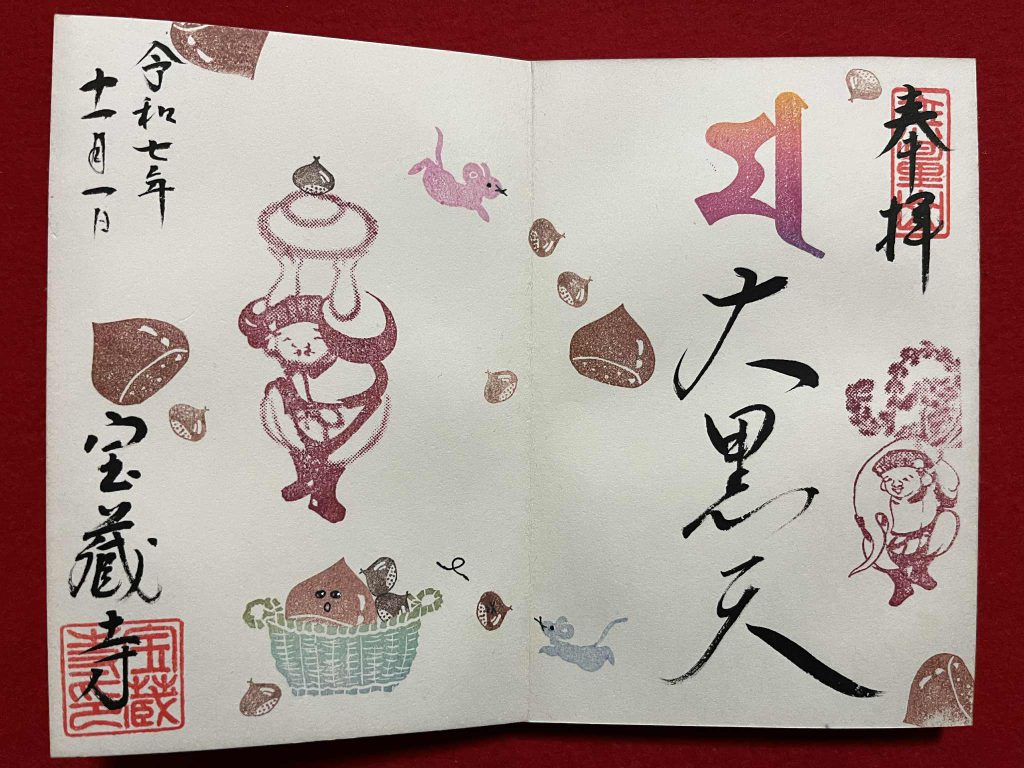 奉拝
大黒天
令和七年
十一月一日
宝蔵寺